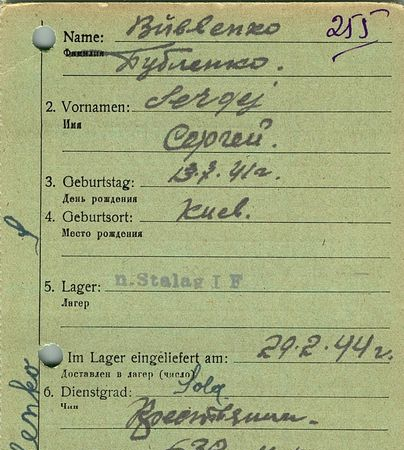 Name: Bübbenko 255
Фамилия Бубленко.
2. Vornamen: Sergej
Имя Сергей.
3. Geburtstag: 13.3.41г.
День рождения
4. Geburtsort: Киев.
Место рождения
5. Lager: n. Stalag I F
Лагер
Im Lager eingeliefert am: 29.2.44г.
Доставлен в лагер (число)
6. Dienstgrad: Sold
Чин
lenko